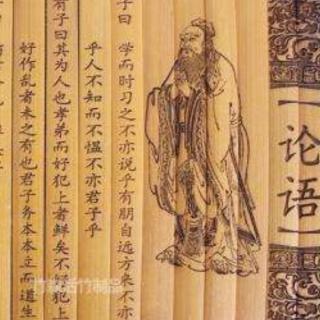 【论语】
子曰 学而时习之不亦说乎有朋自远方来不亦
乎人不知而不愠不亦君子乎
有子曰其为人也孝弟而好犯上者鲜矣不好犯上
好作乱者未之有也君子务本本立而道生
竹制品